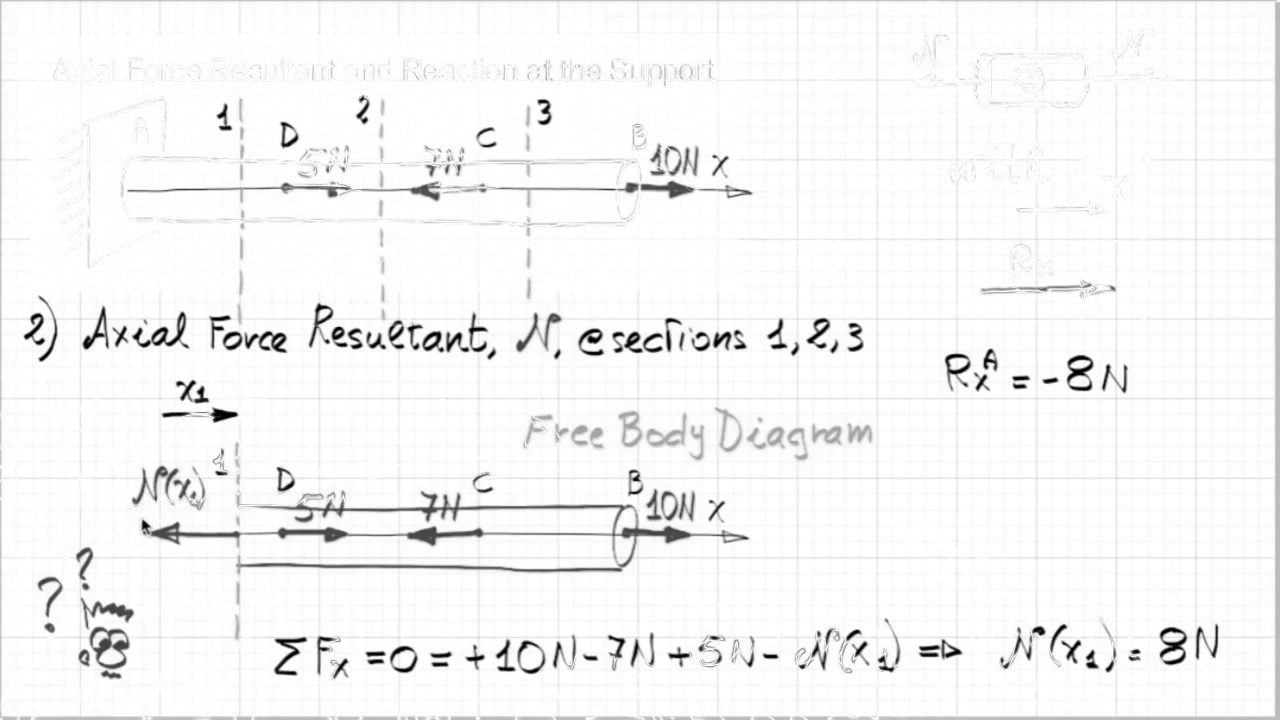 Axial Force Resultant and Reaction at the Support
N + N
1 2 3
A D 5N 7N C B 10N x
with
x
Rx
2) Axial Force Resultant, N, @sections 1,2,3
RxA = -8N
x1
Free Body Diagram
N(x1) 1 D 5N 7N C B 10N x
? ?
ΣFx = 0 = +10N - 7N + 5N - N(x1) => N(x1) = 8N